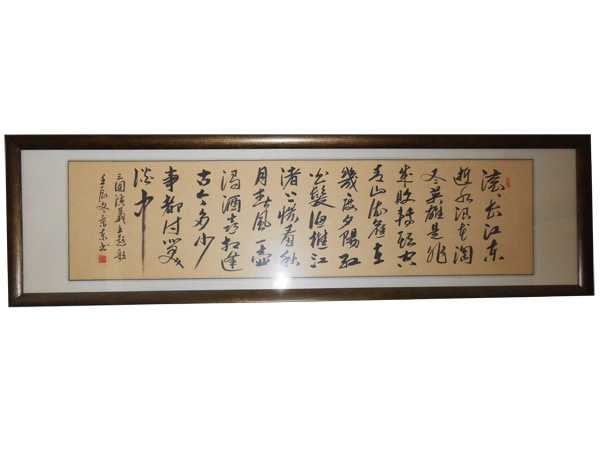 滚滚长江东
逝水浪花淘
尽英雄是非
成败转头空
青山依旧在
幾度夕陽红
白髮渔樵江
渚上惯看秋
月春風一壶
濁酒喜相逢
古今多少
事都付笑
谈中
三國演義主題歌
壬辰冬景东书